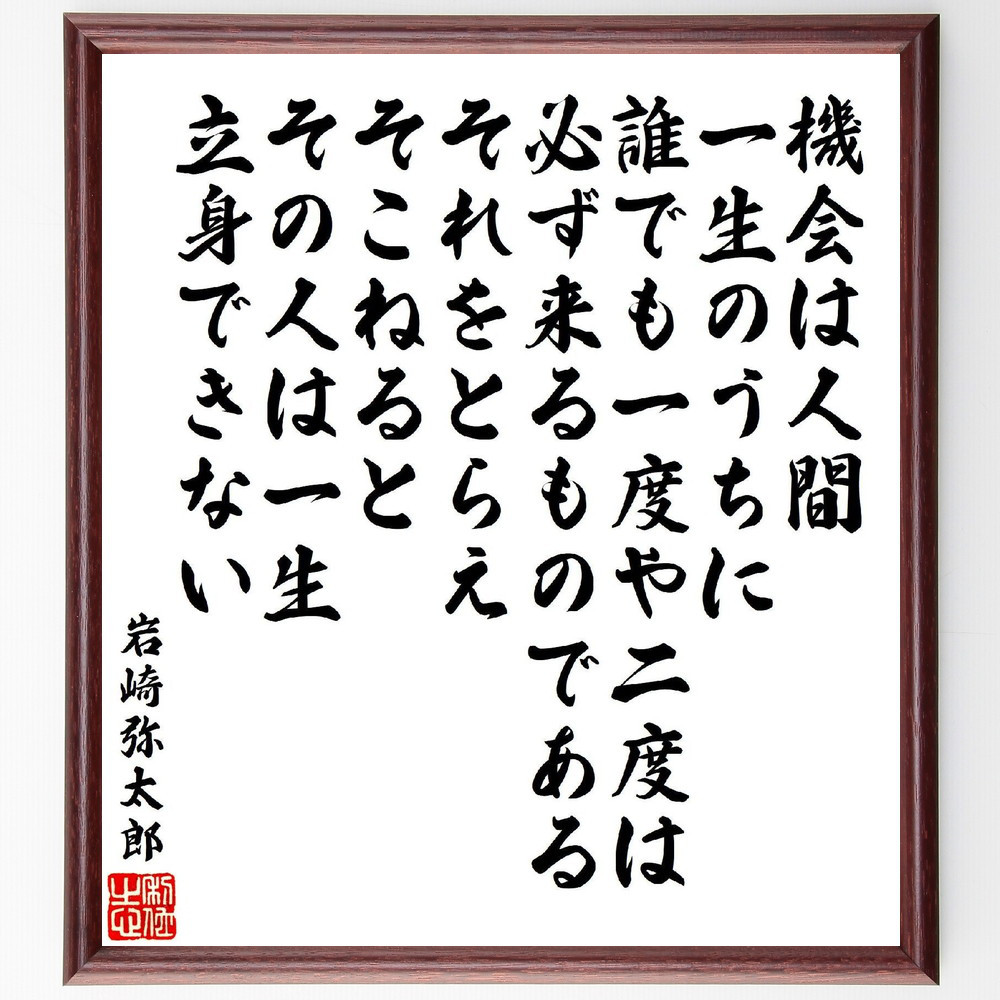 機会は人間
一生のうちに
誰でも一度や二度は
必ず来るものである
それをとらえ
そこねると
その人は一生
立身できない
岩崎弥太郎